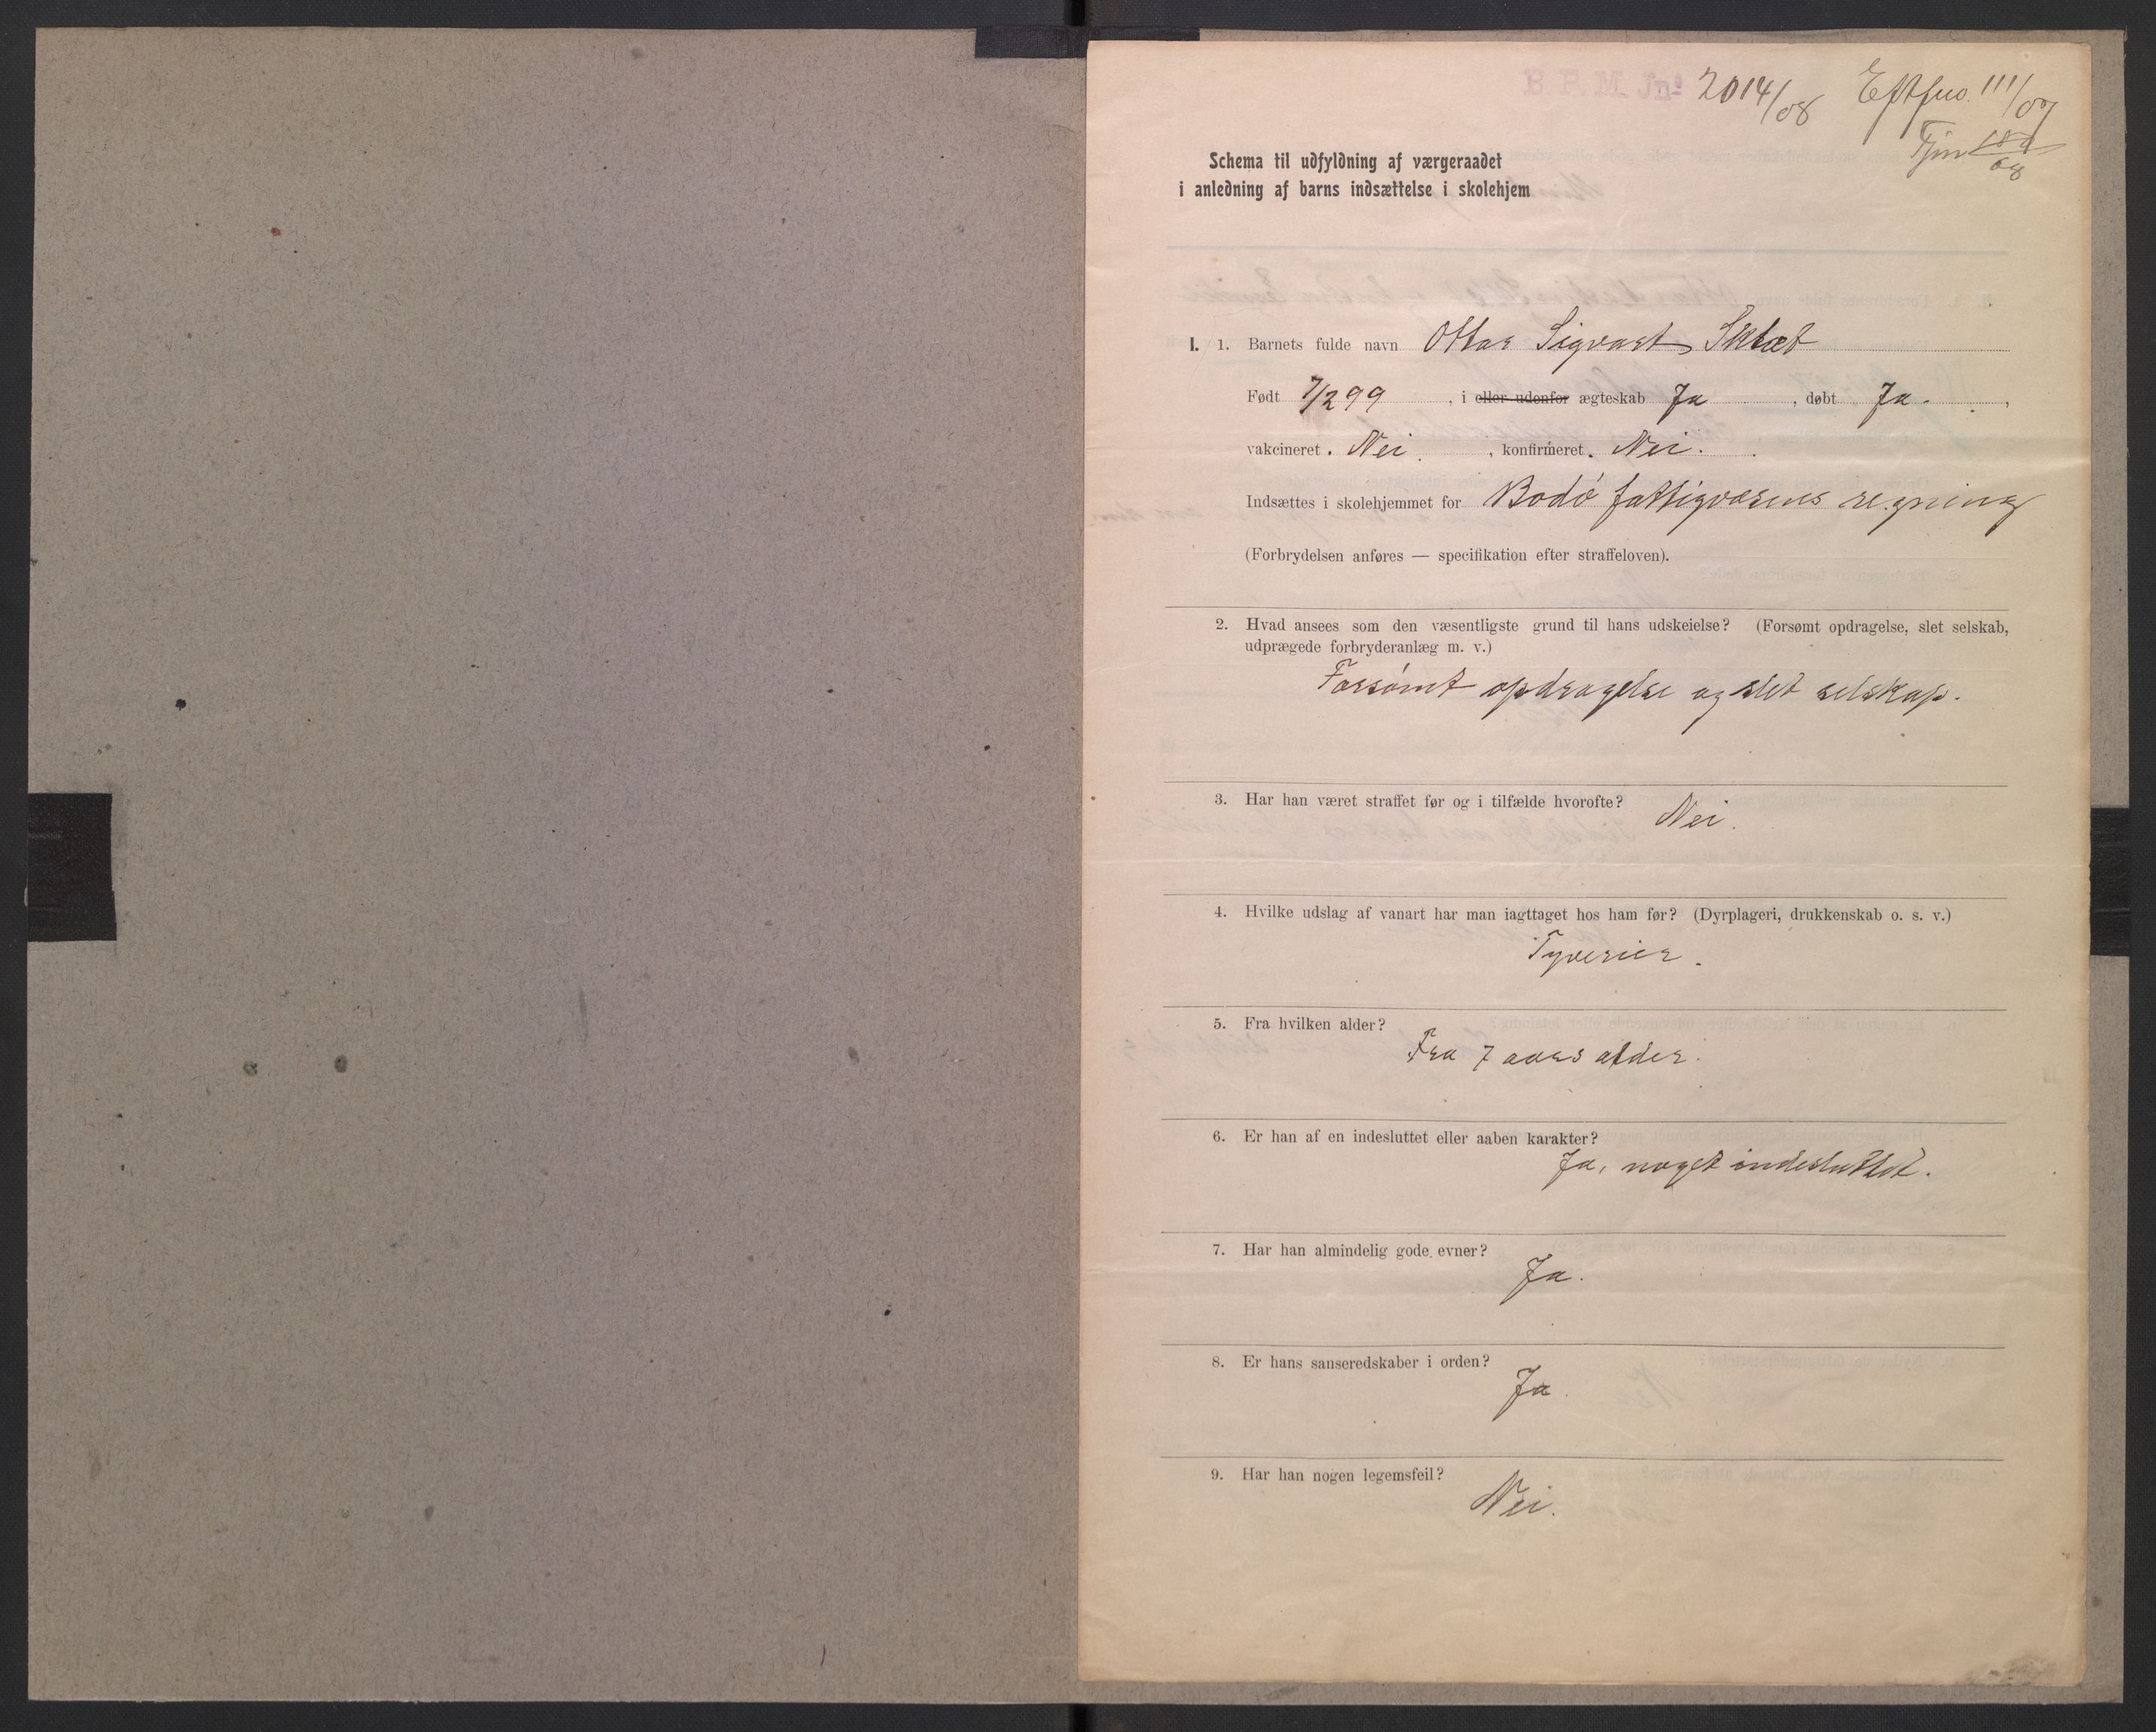 B. P. M. Jnº 2014/08
111/09
Schema til udfyldning af værgeraadet
i anledning af barns indsættelse i skolehjem
I. 1. Barnets fulde navn Ottar Sigvart Sklæt
Født 7/2 99, i eller udenfor ægteskab Ja, døbt Ja.,
vakcineret. Nei., konfirmeret. Nei.
Indsættes i skolehjemmet for Bodø fattigvæsens regning
(Forbrydelsen anføres — specifikation efter straffeloven).
2. Hvad ansees som den væsentligste grund til hans udskeielse? (Forsømt opdragelse, slet selskab,
udprægede forbryderanlæg m. v.)
Forsømt opdragelse og slet selskap.
3. Har han været straffet før og i tilfælde hvorofte? Nei.
4. Hvilke udslag af vanart har man iagttaget hos ham før? (Dyrplageri, drukkenskab o. s. v.)
Tyverier.
5. Fra hvilken alder?
Fra 7 aars alder.
6. Er han af en indesluttet eller aaben karakter?
Ja, noget indesluttet.
7. Har han almindelig gode evner?
Ja.
8. Er hans sanseredskaber i orden?
Ja.
9. Har han nogen legemsfeil?
Nei.